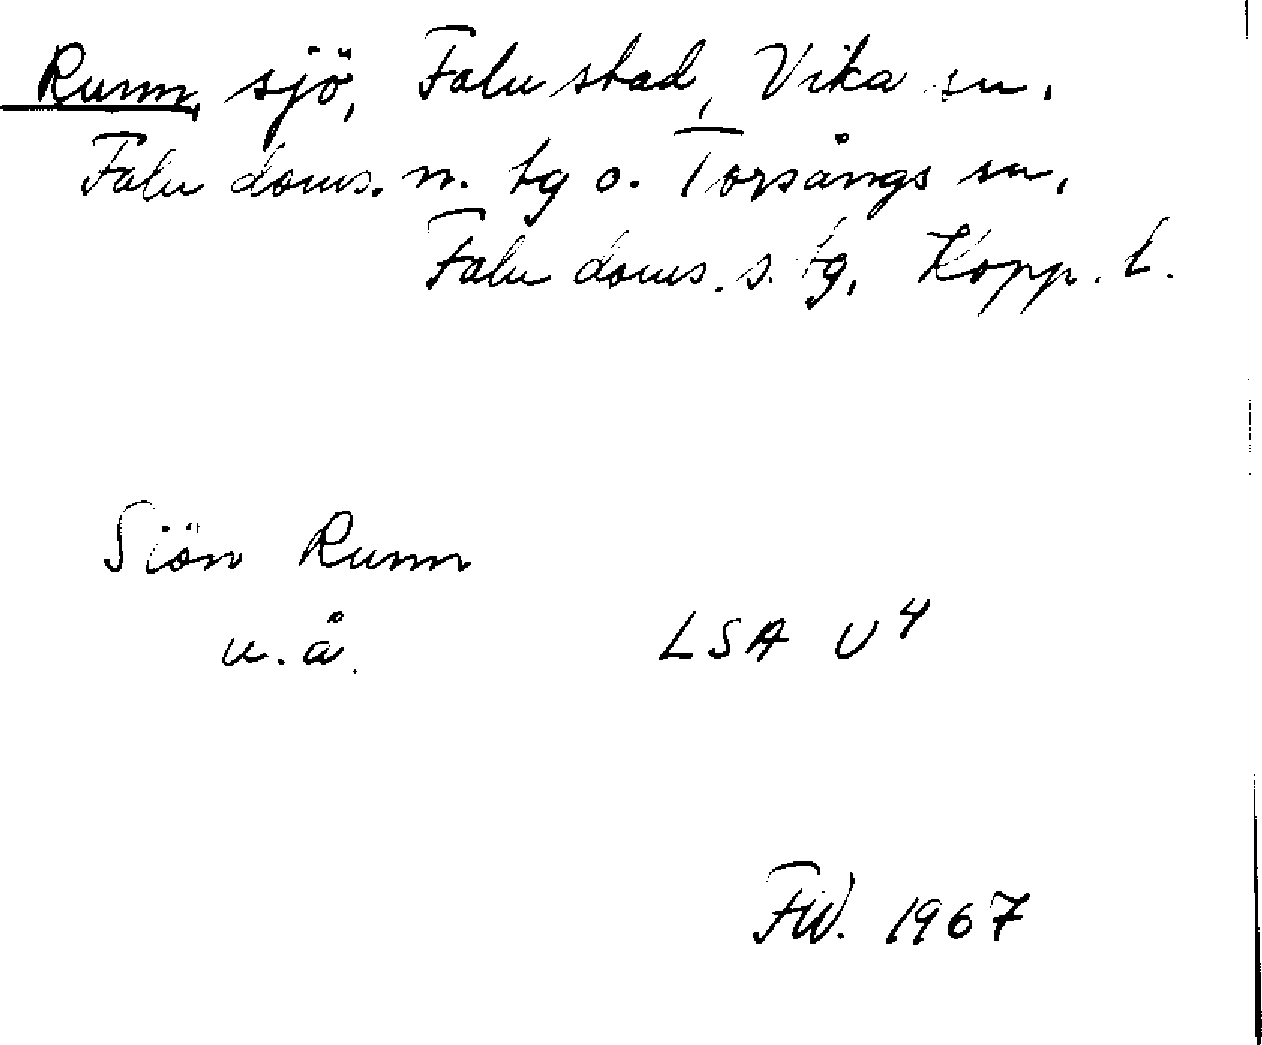 Runn, sjö, Falu stad, Vika sn.
Falu doms. n. tg o. Torsångs sn,
Falu doms. s. tg, Kopp. l.
Siön Runn
u. å.
LSA U4
FW. 1967